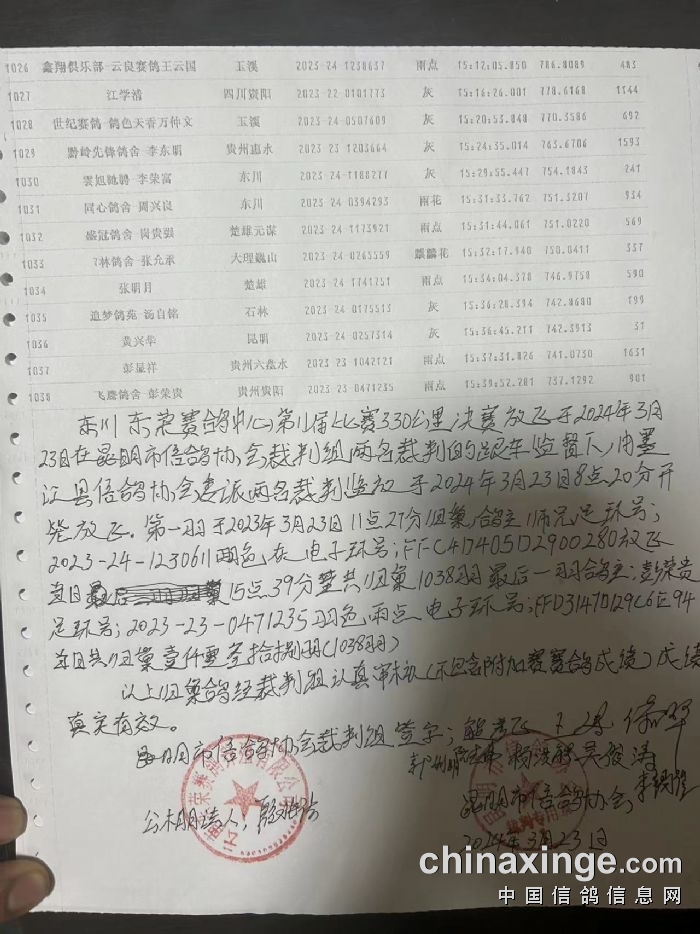 1026 鑫翔俱乐部-云良赛鸽王云国 玉溪 2023-24-1238637 雨点 15:12:05.850 786.8089 483
1027 江学清 四川资阳 2023-22-0101773 灰 15:16:26.001 778.6168 1144
1028 世纪赛鸽-鸽色天香万仲文 玉溪 2023-24-0507609 灰 15:20:53.848 770.3586 692
1029 黔岭先锋鸽舍-李东明 贵州惠水 2023-23-1203664 灰 15:24:35.014 763.6706 1593
1030 云旭驰骋-李荣富 东川 2023-24-1188277 灰 15:29:55.447 754.1843 241
1031 同心鸽舍-周兴良 东川 2023-24-0394293 雨花 15:31:33.762 751.3207 934
1032 盛冠鸽舍 贵强 楚雄元谋 2023-24-1173921 雨点 15:31:44.061 751.0220 569
1033 7林鸽舍-张允承 大理巍山 2023-24-0265559 麒麟花 15:32:17.940 750.0411 337
1034 张明月 楚雄 2023-24-1741751 雨点 15:34:04.378 746.9758 590
1035 追梦鸽苑-汤自铭 石林 2023-24-0175513 灰 15:36:28.394 742.8680 199
1036 黄兴华 昆明 2023-24-0257314 灰 15:36:45.211 742.3913 31
1037 彭显祥 贵州六盘水 2023-23-1042121 雨点 15:37:31.826 741.0730 1631
1038 飞鹰鸽舍-彭荣贵 贵州贵阳 2023-23-0471235 雨点 15:39:52.281 737.1292 901
东川东荣赛鸽中心第八届比赛330公里决赛放飞于2024年3月
23日在昆明市信鸽协会裁判组两名裁判的跟车监督下,由墨
江县信鸽协会委派两名裁判监放于2024年3月23日8点20分开
笼放飞。第一羽于2023年3月23日11点27分归巢,鸽主:师 足环号;
2023-24-1230611雨色,在电子环号;FFC4D405D2900280放飞
当日 15点39分 共归巢1038羽最后一羽鸽主;彭荣贵
足环号;2023-23-0471235羽色,雨点 电子环号;FFD3147D129C6E94
当日共归巢壹仟零叁拾捌羽(1038羽)
以上归巢鸽经裁判组认真审核(不包含附加赛赛鸽成绩)成绩
真实有效。
昆明市信鸽协会裁判组签字;
公棚法人;
昆明市信鸽协会
2024年3月23日
chinaxinge.com
中国信鸽信息网